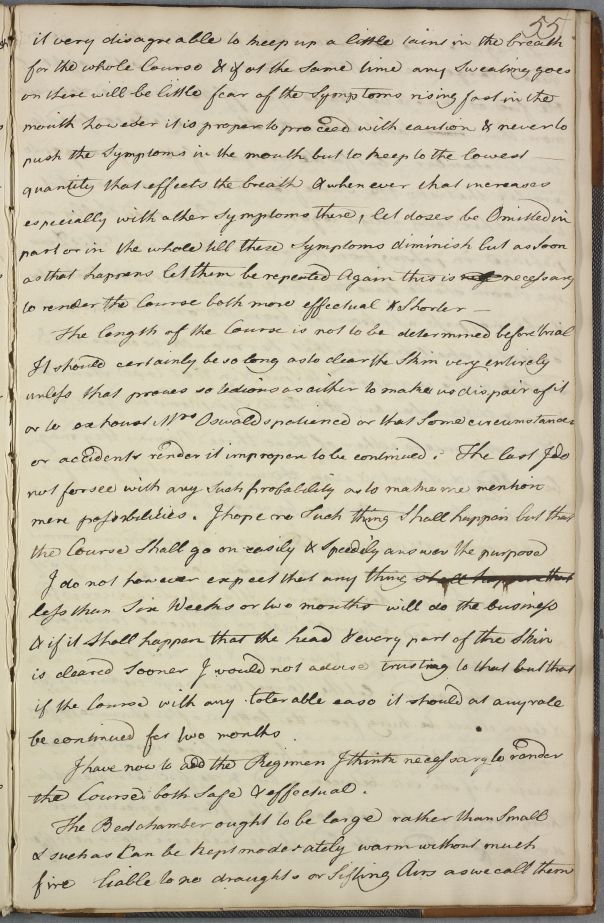 55
it very disagreeable to keep up a little taint in the breath
for the whole Course & if at the Same time any Sweating goes
on there will be little fear of the Symptoms rising fast in the
mouth however it is proper to proceed with caution & never to
push the Symptoms in the mouth but to keep to the lowest
quantity that effects the breath & when ever that increases
especially with other Symptoms there, let doses be Omitted in
part or in the whole till these Symptoms diminish but as soon
as that happens let them be repeated Again this is necessary
to render the Course both more effectual & Shorter —
The length of the Course is not to be determined before trial
It should certainly be so long as to clear the Skin very entirely
unless that proves so tedious as either to make us dispair of it
or to exhaust Mrs Oswalds patience or that Some circumstances
or accidents render it improper to be continued. The last I do
not forsee with any Such probability as to make me mention
mere possibilities. I hope no Such thing Shall happen but that
the Course Shall go on easily & Speedily answer the purpose
I do not however expect that any thing shall happen that
less than Six Weeks or two months will do the business
& if it Shall happen that the head & every part of the Skin
is cleared Sooner I would not advise trusting to that but that
if the Course with any tolerable ease it should at any rate
be continued for two months.
I have now to add the Regimen I think necessary to render
the Course both Safe & effectual.
The Bedchamber ought to be large rather than Small
& such as Can be kept moderately warm without much
fire liable to no draughts or Sifting Airs as we call them